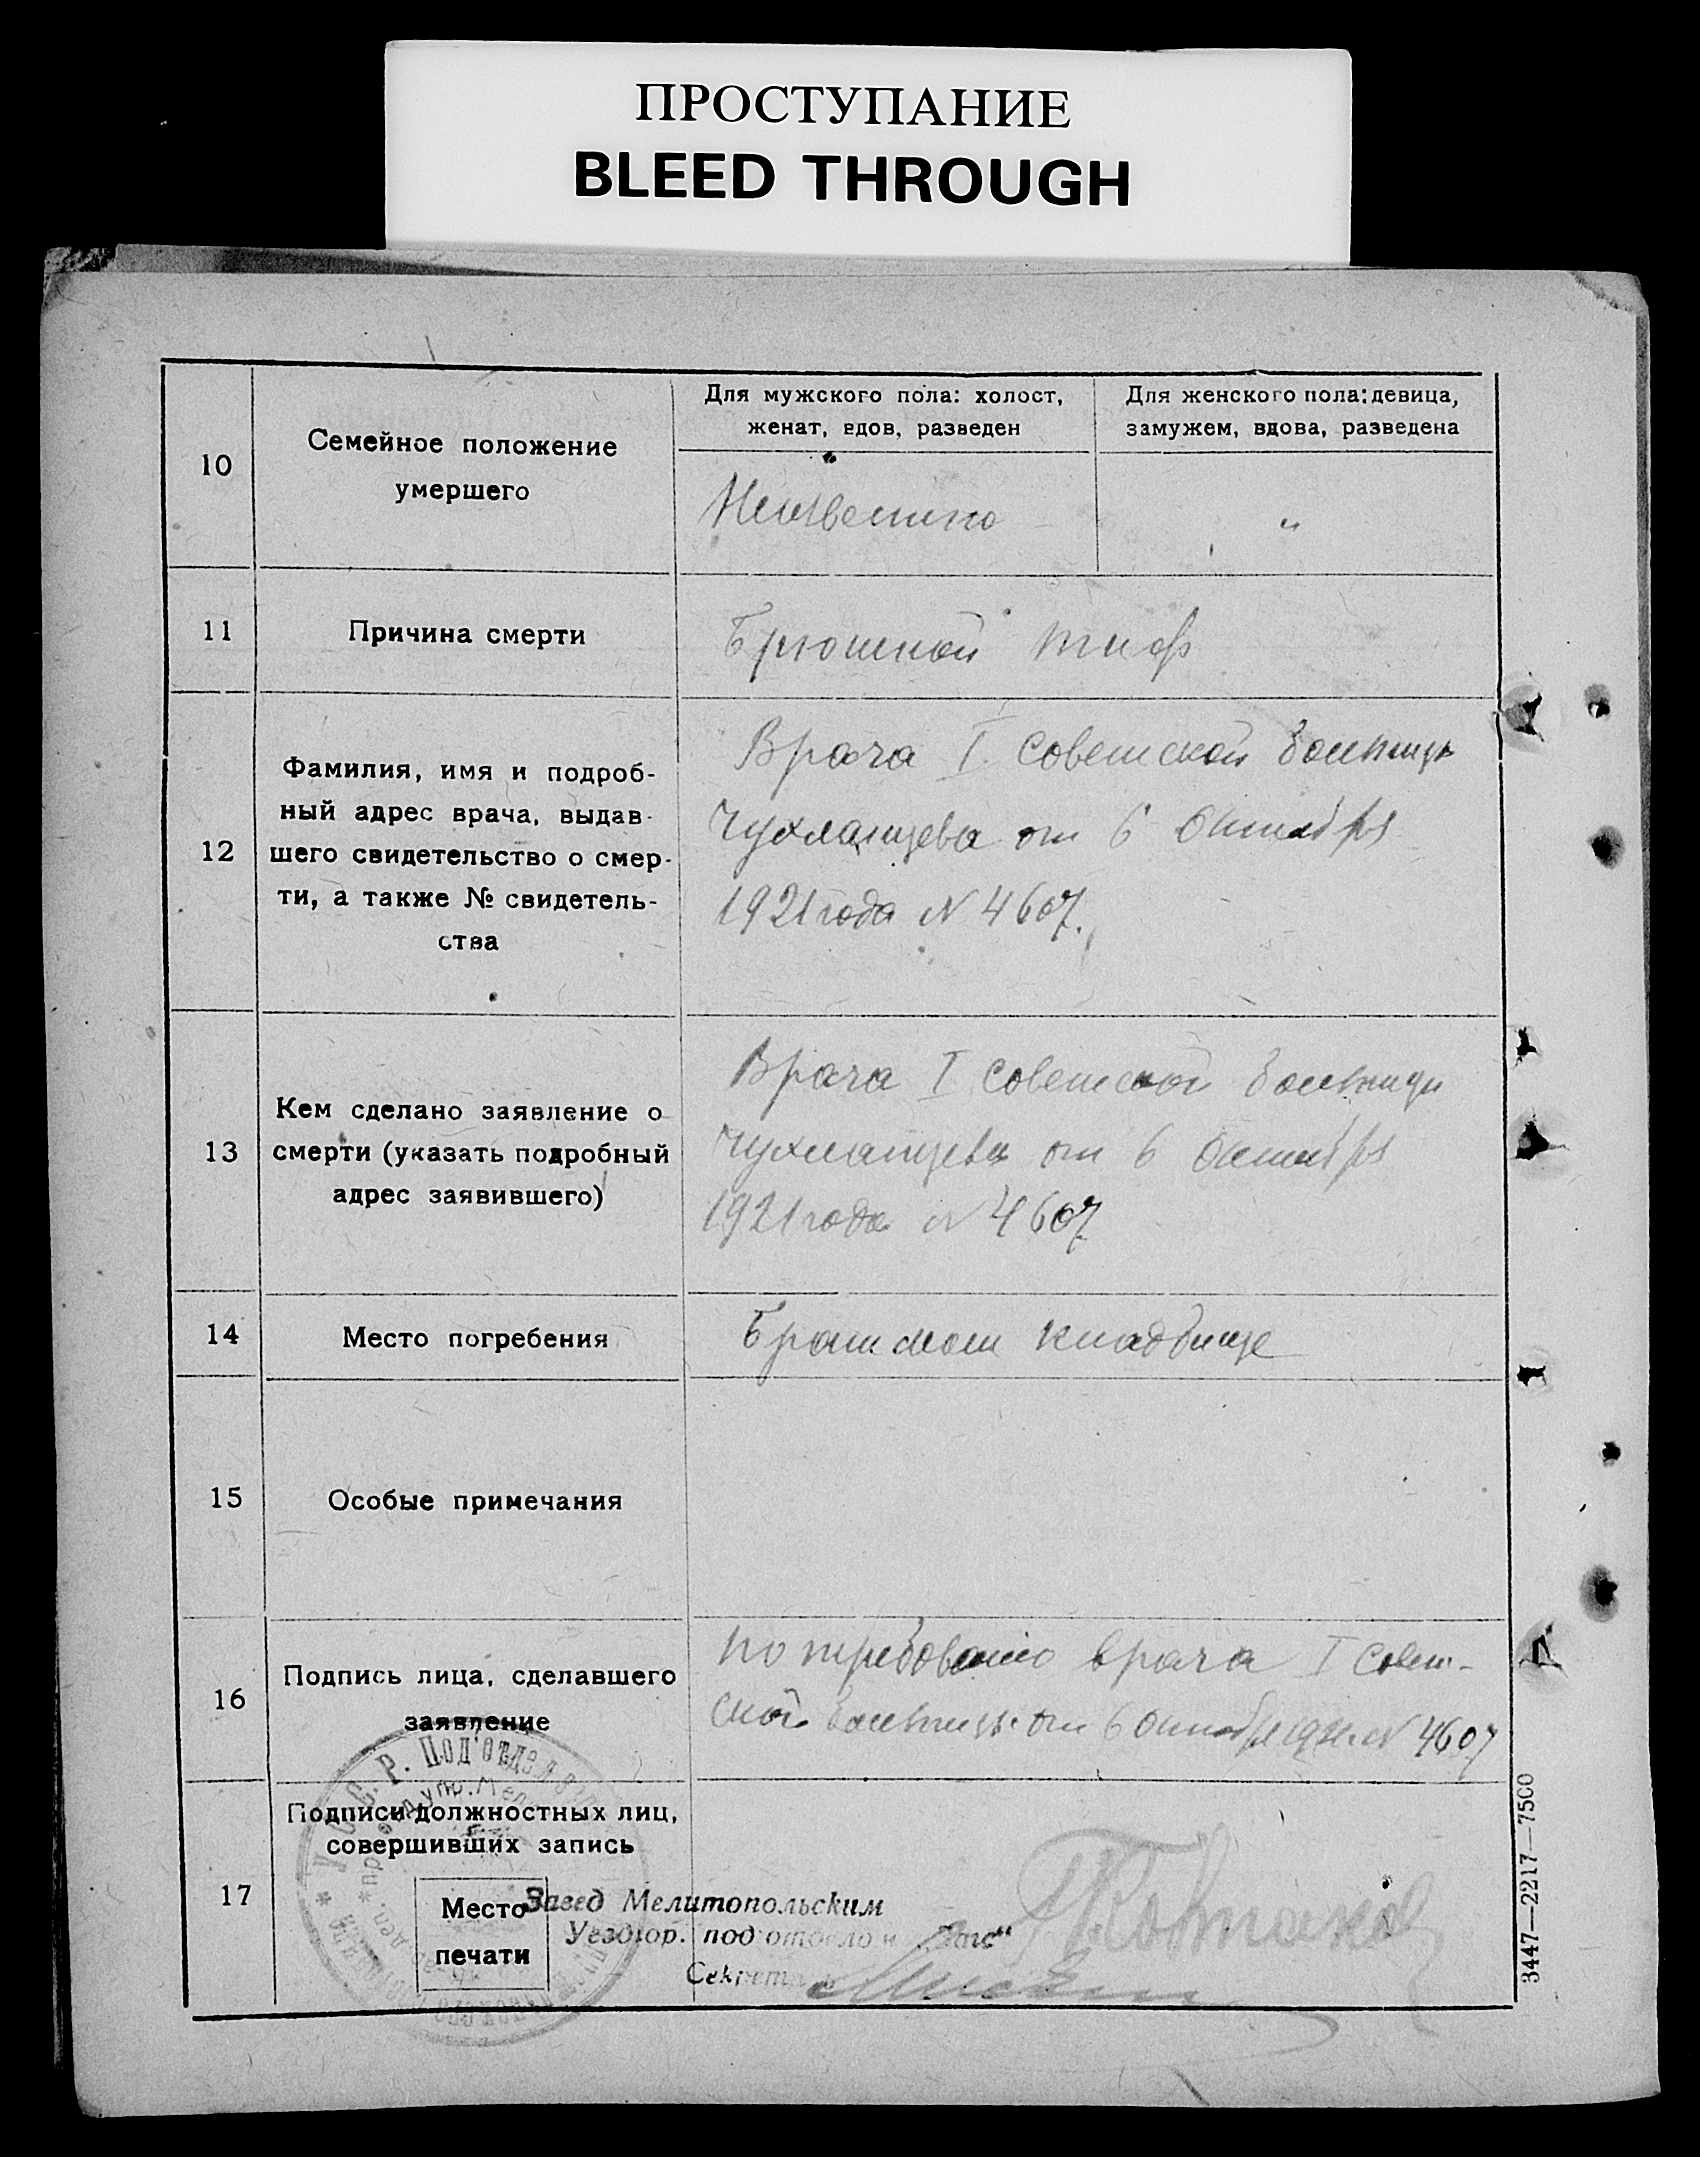 ПРОСТУПАНИЕ
BLEED THROUGH
10
Семейное положение
умершего
Для мужского пола: холост,
женат, вдов, разведен
Для женского пола: девица,
замужем, вдова, разведена
Неизвестно
"
11
Причина смерти
Брюшной тиф
12
Фамилия, имя и подроб-
ный адрес врача, выдав-
шего свидетельство о смер-
ти, а также № свидетель-
ства
Врача I Советской больницы
Чухланцева от 6 Октября
1921 года N 4607.
13
Кем сделано заявление о
смерти (указать подробный
адрес заявившего)
Врача I Советской больницы
Чухланцева от 6 Октября
1921 года N 4607
14
Место погребения
Братское кладбище
15
Особые примечания
16
Подпись лица, сделавшего
заявление
По требованию врача I Совет-
ской больницы от 6 Октября N 4607
17
Подписи должностных лиц,
совершивших запись
Место
печати
У. С. С. Р. Под'отдел
Завед Мелитопольским
Уездгор. под'отдело „Загс"
Секретарь
3447—2217—7500